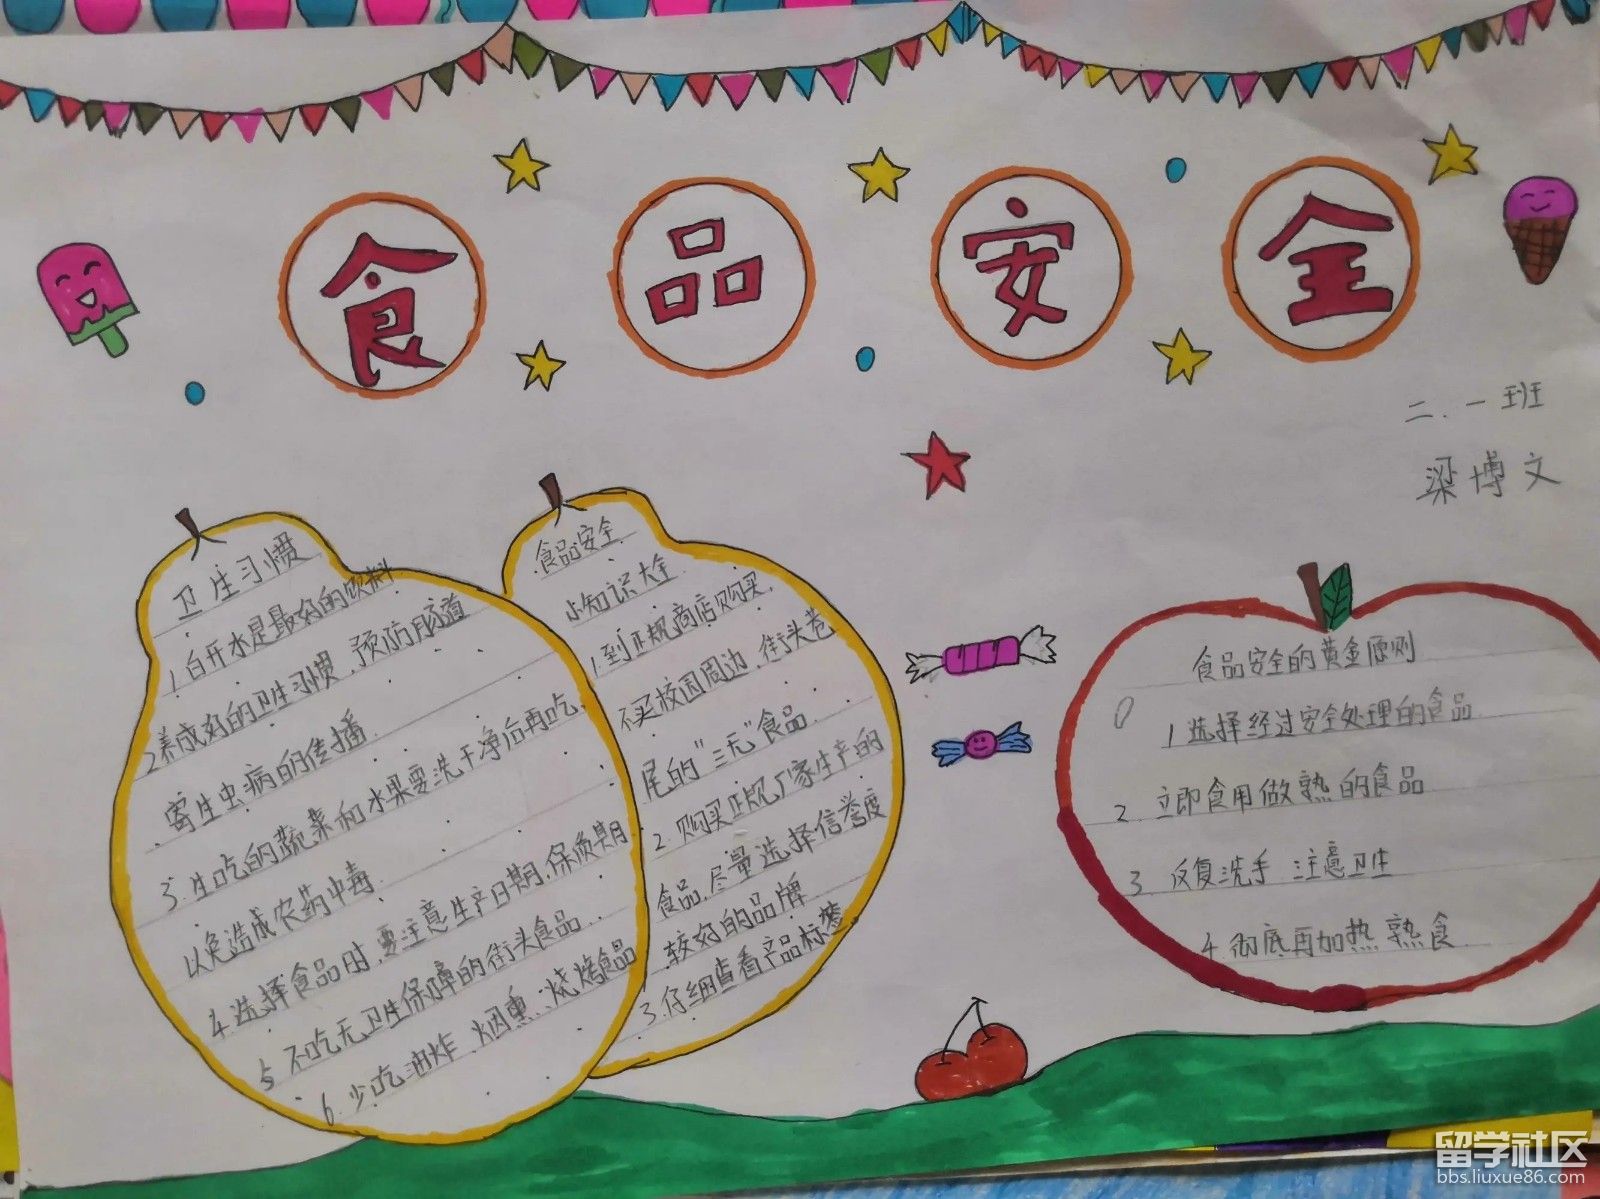 食品安全
二.一班
梁博文
卫生习惯
1.白开水是最好的饮料
2.养成好的卫生习惯,预防肠道
寄生虫病的传播.
3.生吃的蔬菜和水果要洗干净后再吃,
以免造成农药中毒.
4.选择食品时,要注意生产日期.保质期
5.不吃无卫生保障的街头食品.
6.少吃油炸.烟熏.烧烤食品
食品安全
小知识大全
1.到正规商店购买,
不买校园周边,街头巷
尾的"三无"食品.
2.购买正规厂家生产的
食品,尽量选择信誉度
较好的品牌
3.仔细查看产品标签
食品安全的黄金原则
1 选择经过安全处理的食品
2.立即食用做熟的食品
3.反复洗手 注意卫生
4.彻底再加热熟食
留学社区
bbs.liuxue86.com